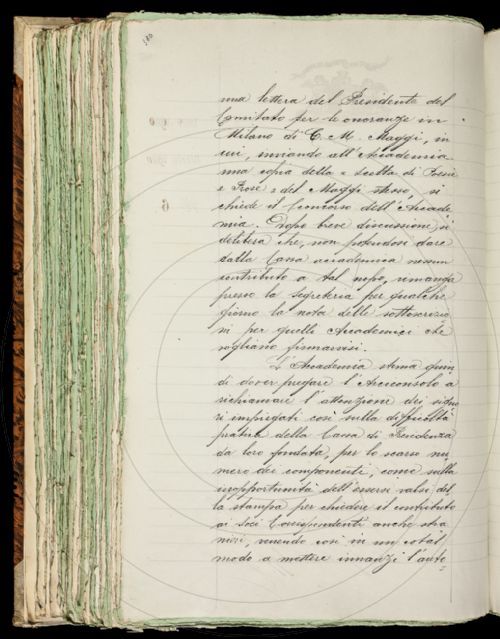 una lettera del Presidente del
Comitato per le onoranze in
Milano di C. M. Maggi, in
cui, inviando all'Accademia
una copia della « Scelta di Poesie
e Prose » del Maggi stesso, si
chiede il concorso dell'Accade
mia. Dopo breve discussione, si
delibera che, non potendosi dare
dalla Cassa accademica nessun
contributo a tal uopo, rimanga
presso la Segreteria per qualche
giorno la nota delle sottoscrizio
ni per quelli Accademici che
vogliano firmarvisi.
L'Accademia stima quin
di dover pregare l'Arciconsolo a
richiamare l'attenzione dei signo
ri impiegati così sulla difficoltà
pratica della Cassa di Previdenza
da loro fondata, per lo scarso nu
mero dei componenti, come sulla
inopportunità dell'essersi valsi del
la stampa per chiedere il contributo
ai Soci Corrispondenti anche stra
nieri, venendo così in un cotal
modo a mettere innanzi l'auto=